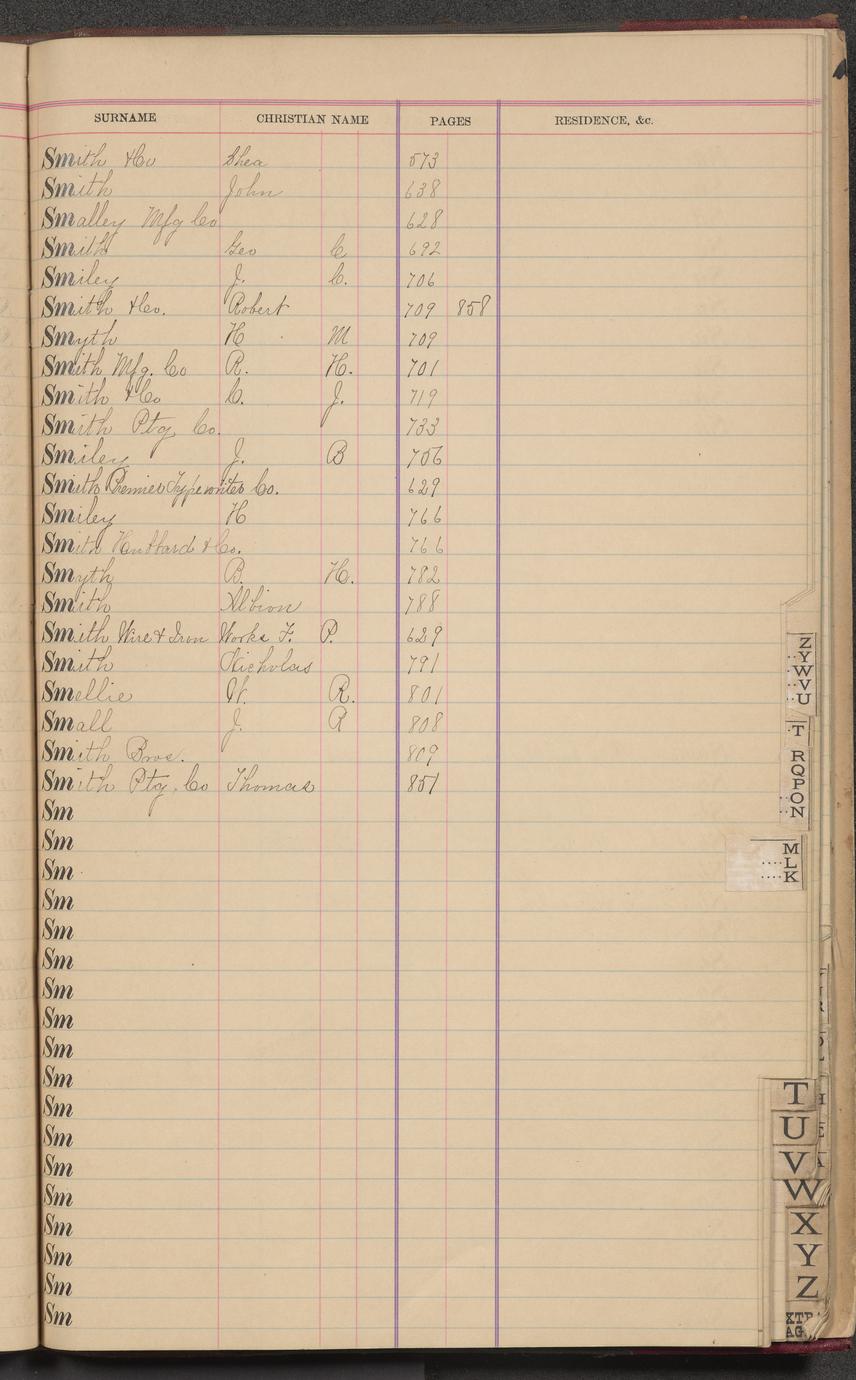 SURNAME CHRISTIAN NAME PAGES RESIDENCE, &c.
Smith & Co Shea 573
Smith John 638
Smalley Mfg Co 628
Smith Geo C 692
Smiley J. C. 706
Smith & Co. Robert 709 858
Smyth H M 709
Smith Mfg. Co R. H. 701
Smith & Co C. J. 719
Smith Ptg Co. 733
Smiley J. B 706
Smith Premier Typewriter Co. 629
Smiley H 766
Smith Hubbard & Co. 766
Smyth B. H. 782
Smith Albion 788
Smith Wire & Iron Works F. P. 629
Smith Nicholas 791
Smellie W. R. 801
Small J. R 808
Smith Bros. 809
Smith Ptg. Co Thomas 851
Sm
Sm
Sm
Sm
Sm
Sm
Sm
Sm
Sm
Sm
Sm
Sm
Sm
Sm
Sm
Sm
Sm
Sm
Z
Y
W
V
U
T
R
Q
P
O
N
M
L
K
T
U
V
W
X
Y
Z